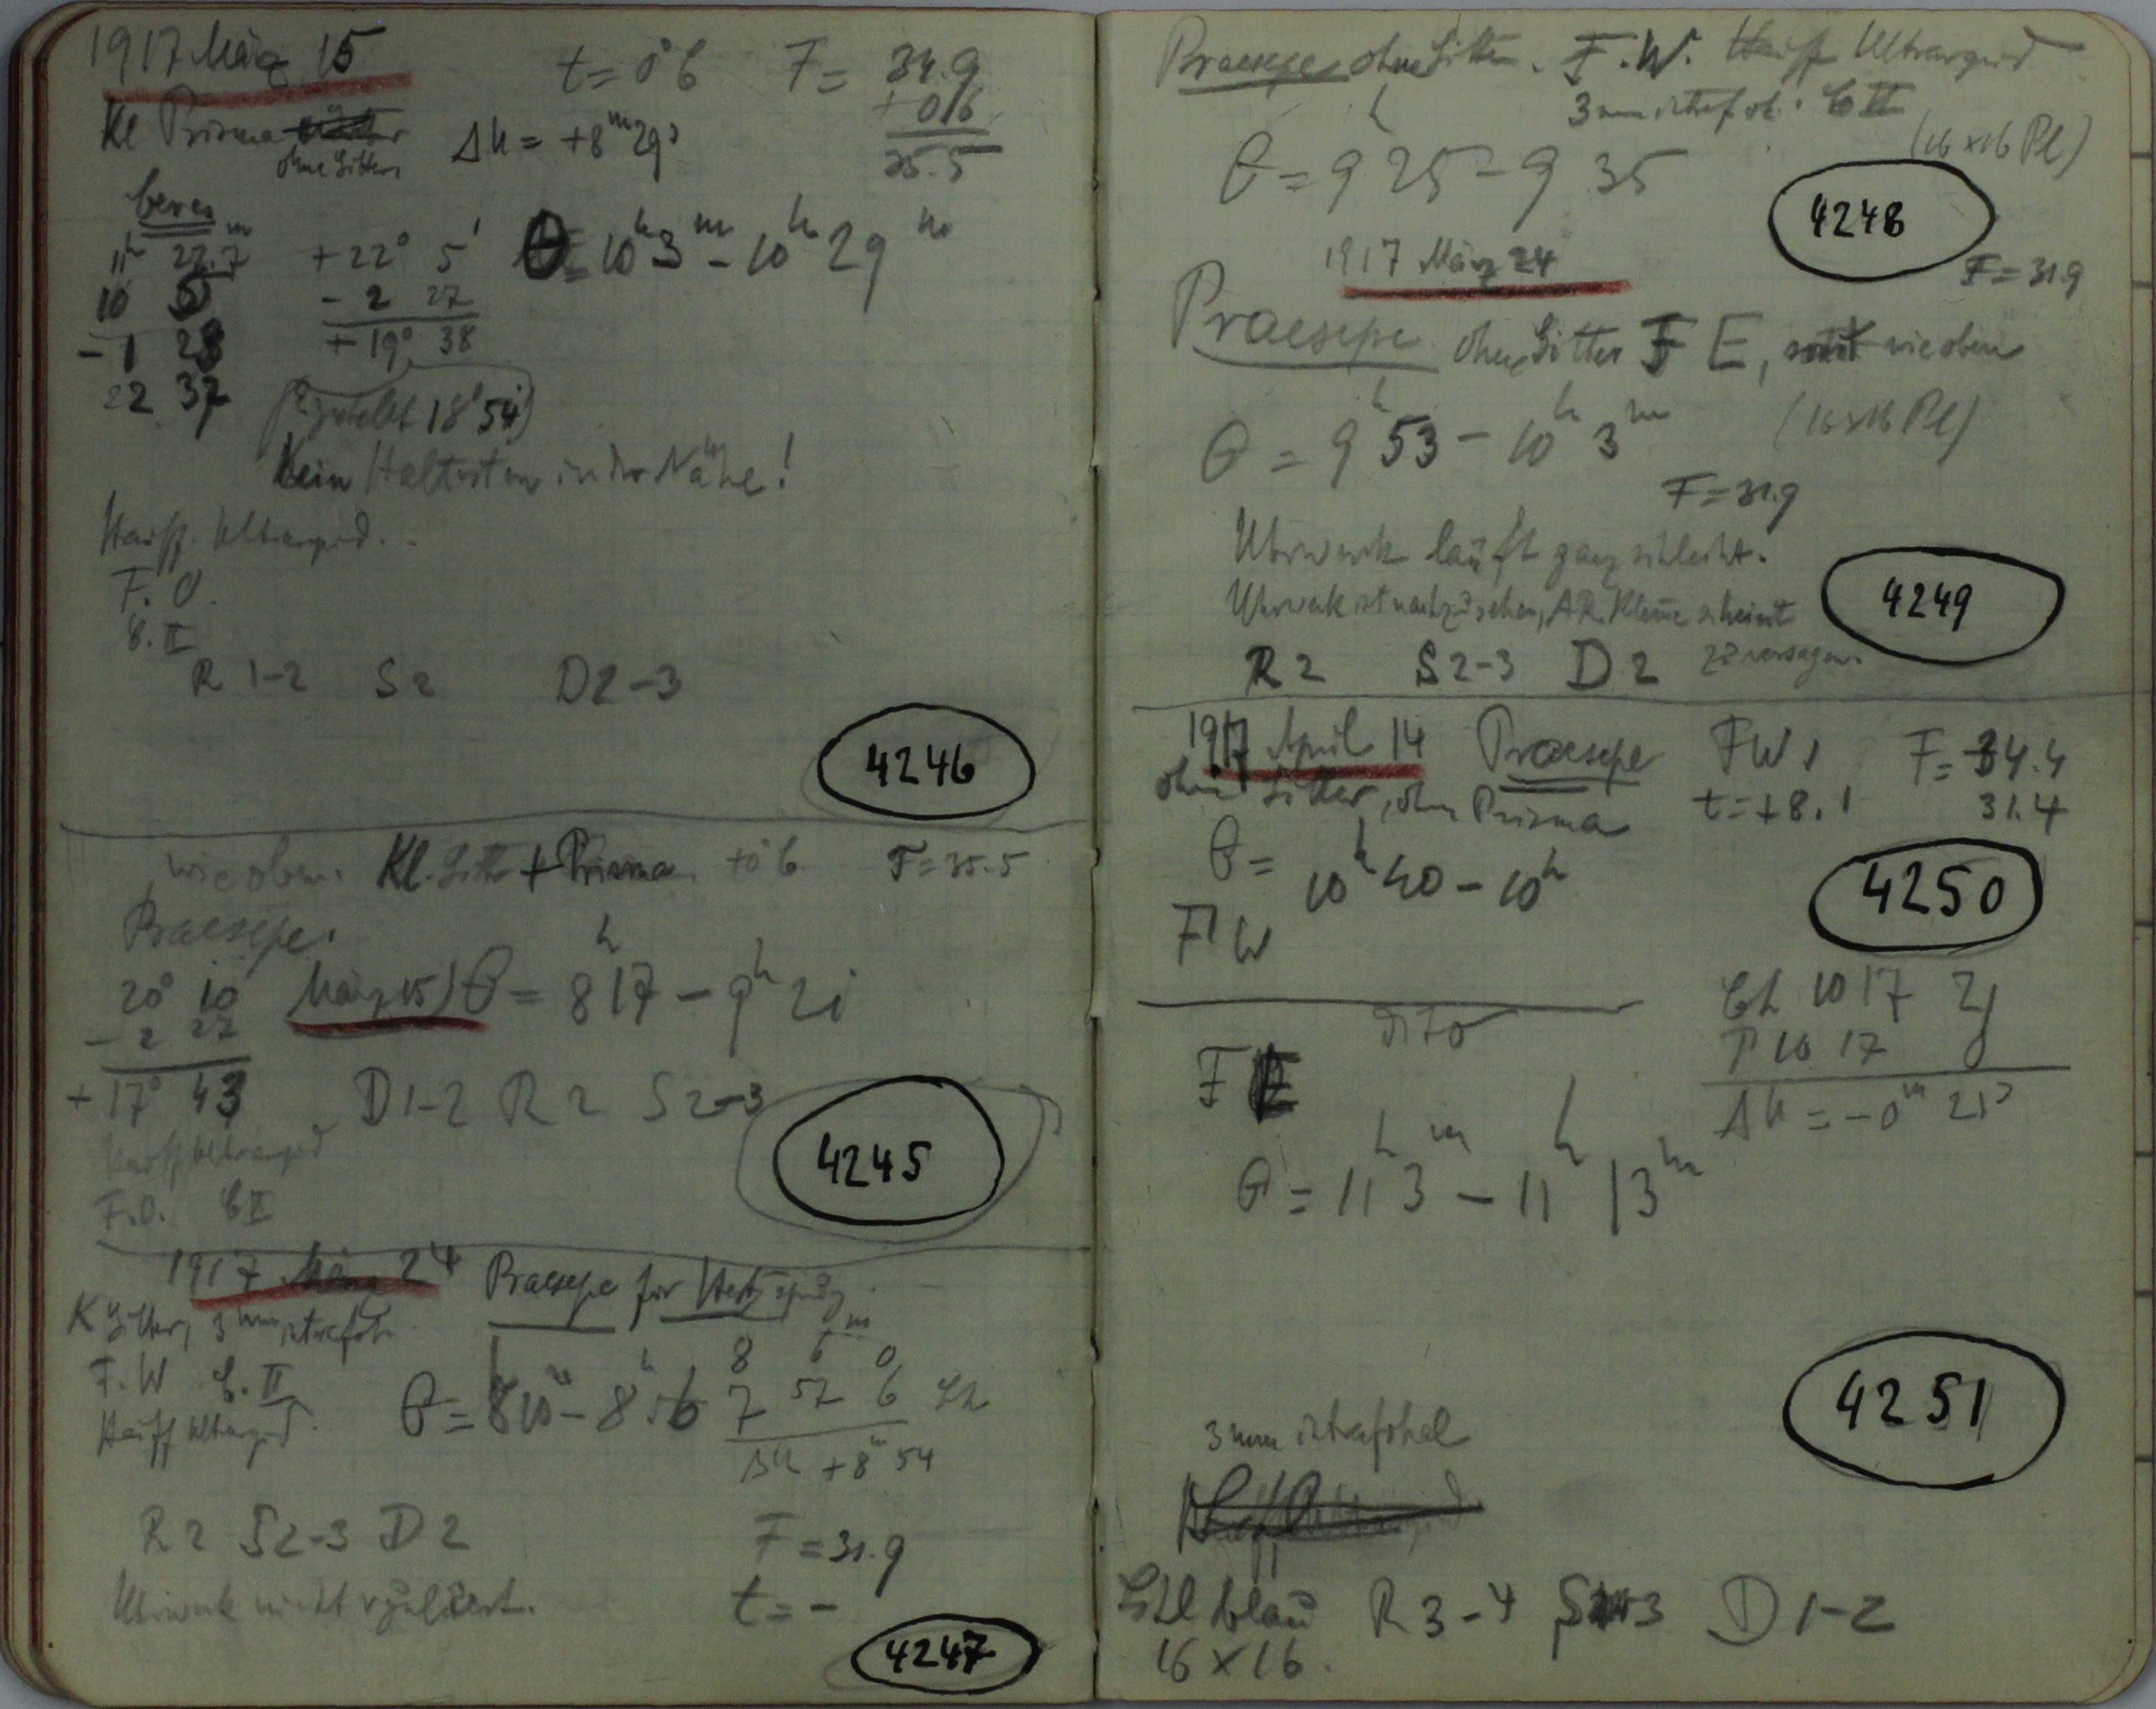 1917 März 15
t = 0°6 F = 34.9
+ 0.6
35.5
Kl Prisma
ohne Gitter
Δu = +8ᵐ 29ˢ
11ʰ 22.7ᵐ +22° 5'
10 5 - 2 27
-1 28 + 19° 38
22 37
θ = 10ʰ 3ᵐ - 10ʰ 29ᵐ
18° 54'
Kein Haltstern in der Nähe!
Hauff. Ultrarapid.
F. O.
B. II
R 1-2 S 2 D 2-3
4246
wie oben. Kl. Gitter + Prisma. +0°6 F = 35.5
Praesepe.
20° 10
- 2 27
+ 17° 43
März 15) θ = 8ʰ 17 - 9ʰ 21
D 1-2 R 2 S 2-3
Hauff Ultrarapid
F.O. B II
4245
1917 März 24 Praesepe für
K Gitter, 3 mm intrafok.
F. W B. II
Hauff Ultrarapid.
θ = 8ʰ 10ᵐ - 8ʰ 56
8 6 0
7 57 6
Δu +8ᵐ 54
R 2 S 2-3 D 2
F = 31.9
Uhrwerk nicht reguliert.
t = -
4247
Praesepe ohne Gitter. F. W. Hauff Ultrarapid
3 mm intrafok. B II
(16 x 16 Pl)
θ = 9ʰ 25 - 9 35
4248
1917 März 24
F = 31.9
Praesepe ohne Gitter F E, sonst wie oben
θ = 9ʰ 53 - 10ʰ 3ᵐ
(16 x 16 Pl)
F = 31.9
Uhrwerk läuft ganz schlecht.
Uhrwerk ist nachzusehen, AR. Klemme scheint
zu versagen.
4249
R 2 S 2-3 D 2
1917 April 14 Praesepe F W 1 F = 34.4
ohne Gitter, ohne Prisma t = +8.1 31.4
θ = 10ʰ 40 - 10ʰ
4250
F W
10 17 21
10 17
Δu = -0ᵐ 21ˢ
dito
F E
θ = 11ʰ 3ᵐ - 11ʰ 13ᵐ
4251
3 mm intrafokal
blau R 3-4 S 3 D 1-2
16 x 16.